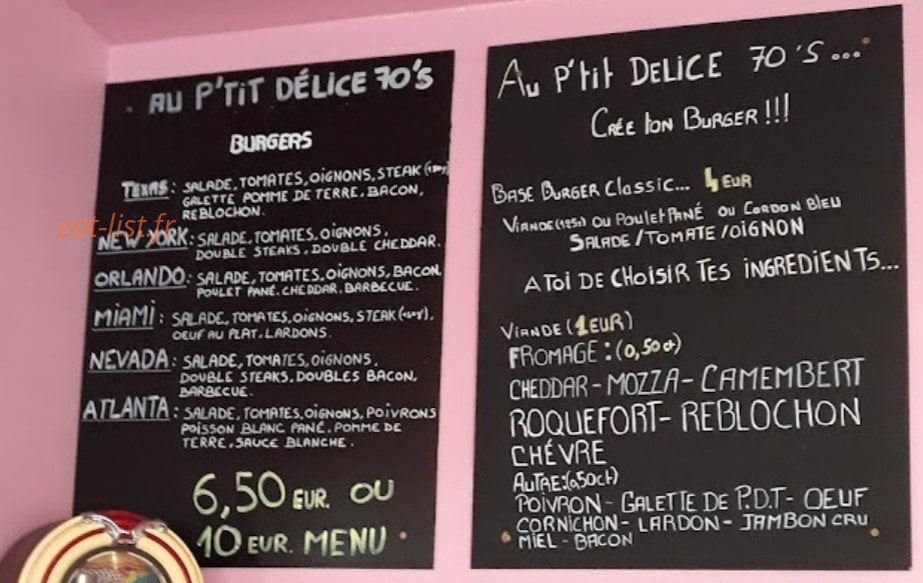 AU P'TIT DÉLICE 70'S
BURGERS
TEXAS : SALADE, TOMATES, OIGNONS, STEAK
GALETTE POMME DE TERRE, BACON,
REBLOCHON.
eat-list.fr
NEW YORK : SALADE, TOMATES, OIGNONS,
DOUBLE STEAKS, DOUBLE CHEDDAR.
ORLANDO : SALADE, TOMATES, OIGNONS, BACON,
POULET PANÉ, CHEDDAR, BARBECUE.
MIAMI : SALADE, TOMATES, OIGNONS, STEAK
OEUF AU PLAT, LARDONS.
NEVADA : SALADE, TOMATES, OIGNONS,
DOUBLE STEAKS, DOUBLES BACON,
BARBECUE.
ATLANTA : SALADE, TOMATES, OIGNONS, POIVRONS
POISSON BLANC PANÉ, POMME DE
TERRE, SAUCE BLANCHE.
6,50 EUR. OU
10 EUR. MENU
AU P'tit DELICE 70'S...
CRÉE TON BURGER !!!
BASE BURGER CLASSIC... 4 EUR
VIANDE OU POULET PANÉ OU CORDON BLEU
SALADE / TOMATE / OIGNON
A TOI DE CHOISIR TES INGREDIENTS...
VIANDE (1 EUR)
FROMAGE : (0,50ct)
CHEDDAR - MOZZA - CAMEMBERT
ROQUEFORT - REBLOCHON
CHÉVRE
AUTRE : (0,50ct)
POIVRON - GALETTE DE P.D.T - OEUF
CORNICHON - LARDON - JAMBON CRU
MIEL - BACON